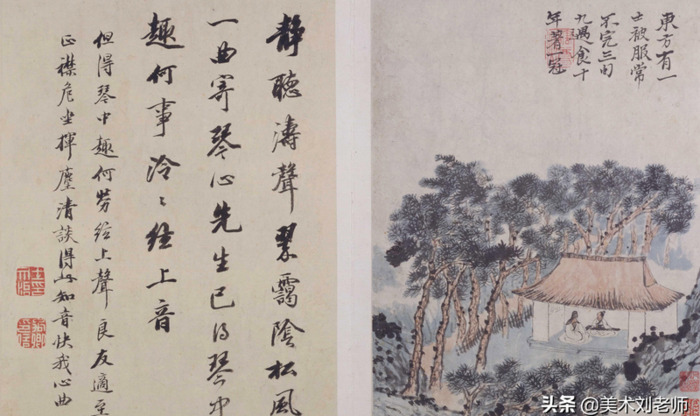 東方有一
士被服常
不完三旬
九遇食十
年著一冠
靜聽濤聲翠靄陰松風
一曲寄琴心先生已得琴中
趣何事泠〻絃上音
但得琴中趣何勞絃上聲良友適至
正襟危坐揮麈清談得此知音快我心曲
头条 @美术刘老师